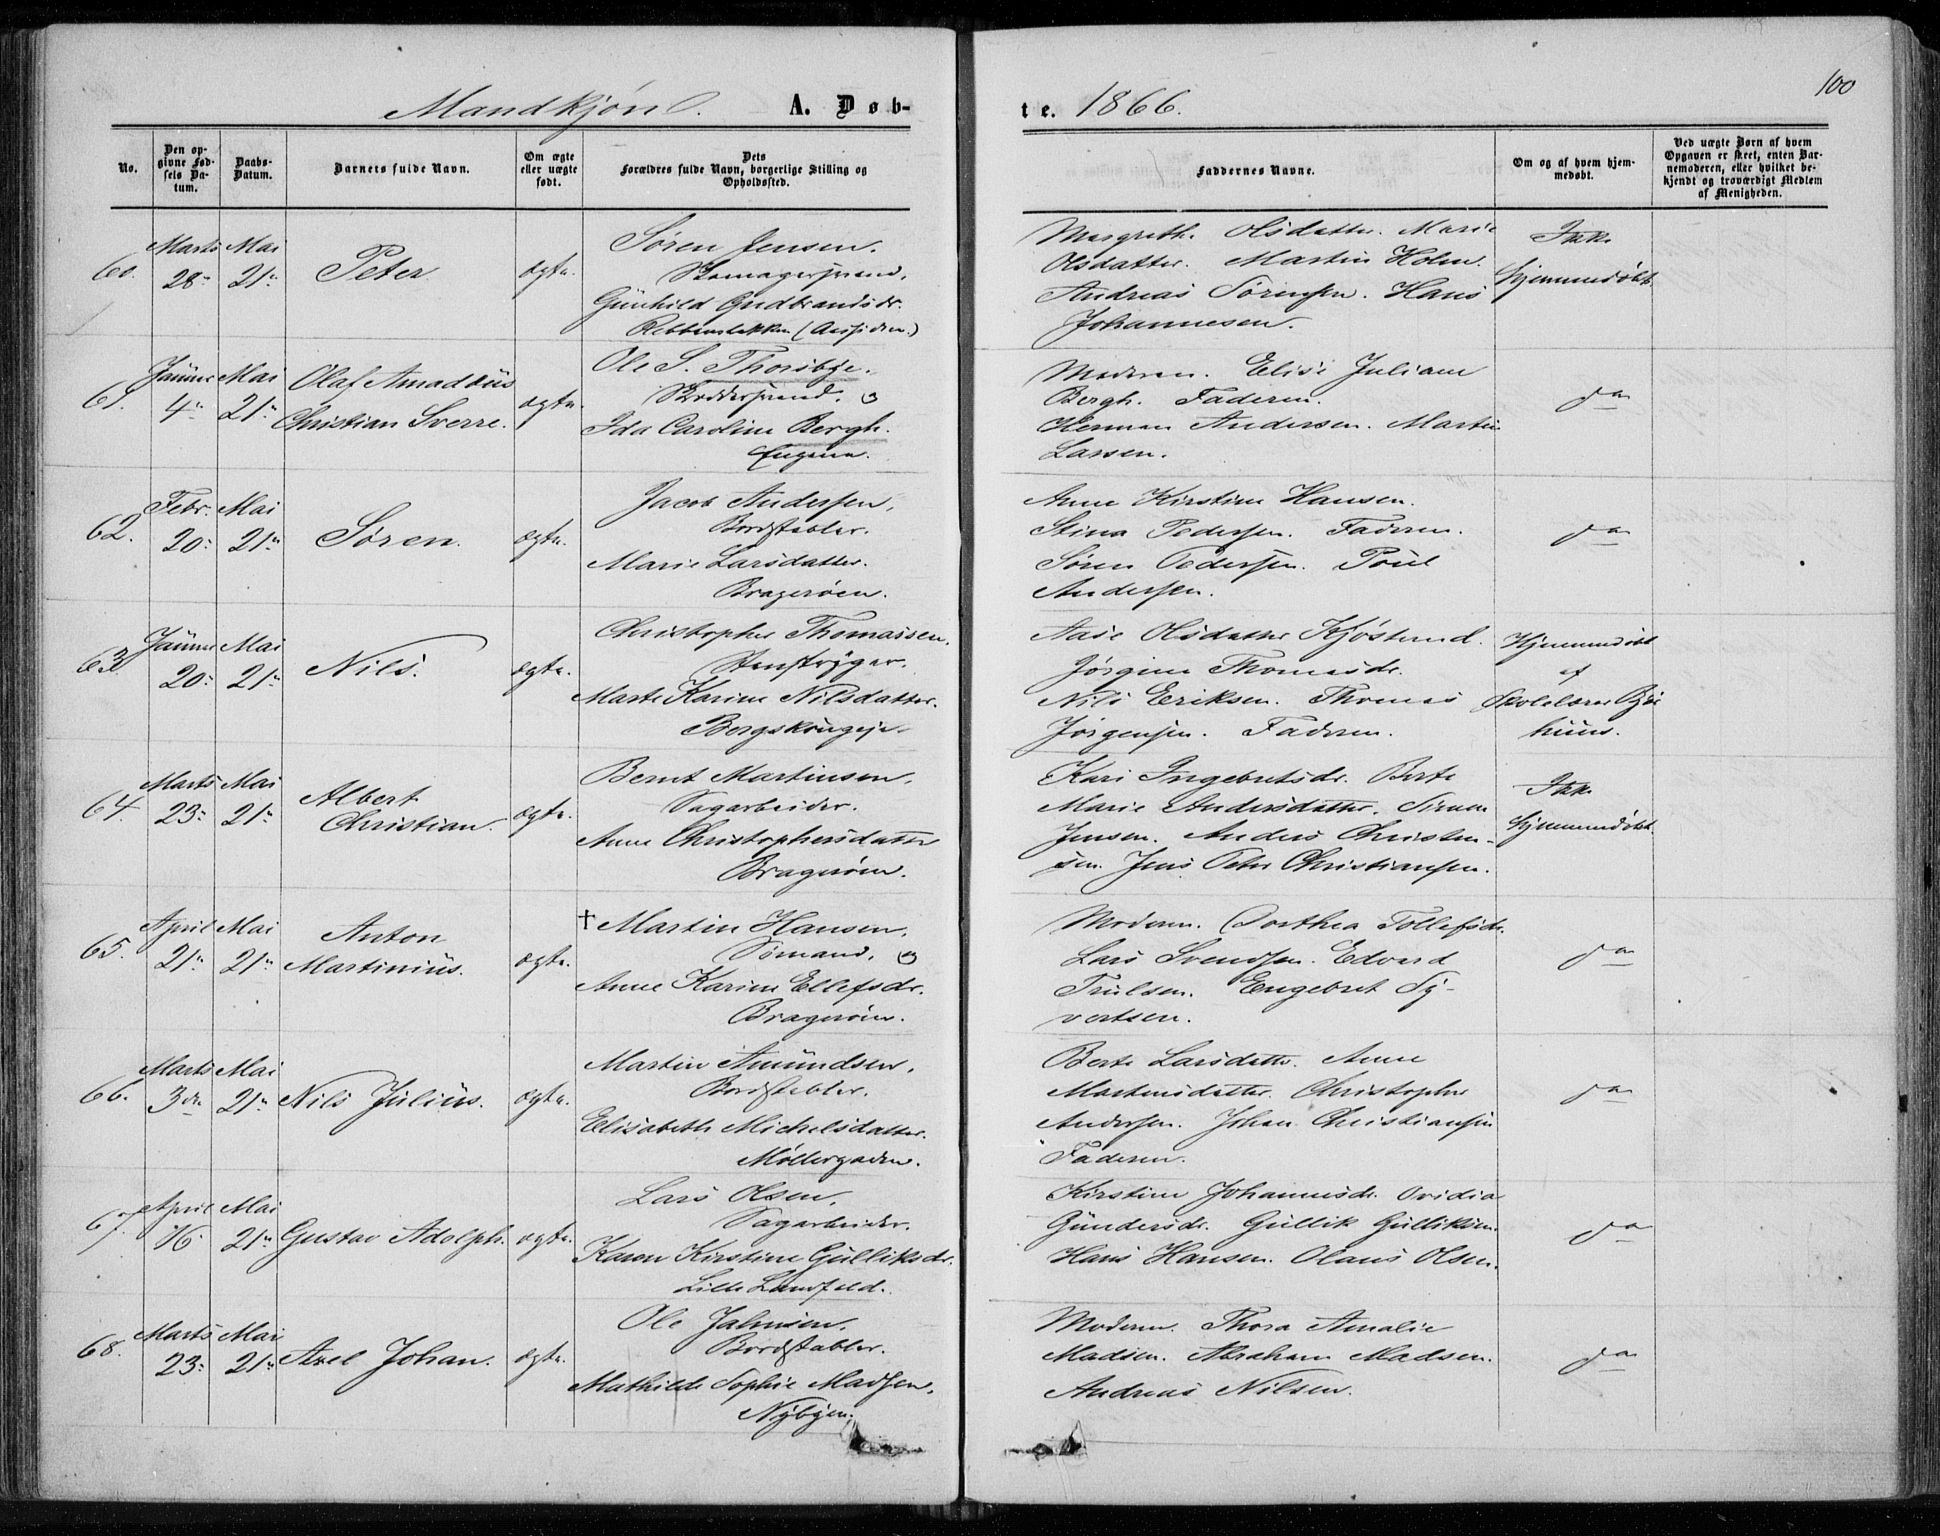 100
Mandkjøn. A. Døb-
te. 1866.
No.
Den op-
givne Fød-
sels Da-
tum.
Daabs-
Datum.
Barnets fulde Navn.
Om ægte
eller uægte
født.
Dets
Forældres fulde Navn, borgerlige Stilling og
Opholdssted.
Faddernes Navne.
Om og af hvem hjem-
medøbt.
Ved uægte Børn af hvem
Opgaven er skeet, enten Bar-
nemoderen, eller hvilket be-
kjendt og troværdigt Medlem
af Menigheden.
60. Marts 28 Mai 21 Peter ægte.
Søren Jensen.
Skomagersvend.
Günhild Gudbrandsdr.
Margrethe Olsdatter. Marie
Olsdatter. Martin Holm.
Andreas Sørensen. Hans
Johannesen.
Ikke
hjemmedøbt.
61. Januar 4 Mai 21 Olaf Amadeüs
Christian Sverre. ægte.
Ole S. Thorsbye.
Skræddersvend.
Ida Caroline Bergh.
Engene.
Moderen. Elise Juliane
Bergh. Faderen.
Herman Andersen. Martin
Larsen.
do
62. Febr. 20 Mai 21 Søren. ægte.
Jacob Andersen.
Bordstabler.
Marie Larsdatter.
Bragerøen.
Anne Kirstine Hansen.
Stina Pedersen. Faderen.
Søren Pedersen. Poul
Andersen.
do
63. Januar 20 Mai 21 Nils. ægte.
Christopher Thomassen.
Marte Karine Nilsdatter.
Aase Olsdatter Kjøsterud.
Jørgine Thomasdr.
Nils Eriksen. Thomas
Jørgensen. Faderen.
Hjemmedøbt
af
Skolelærer
64. Marts 23 Mai 21 Albert
Christian. ægte.
Bernt Martinsen.
Sagarbeider.
Anne Christophersdatter
Bragerøen.
Kari Ingebretsdr. Berte
Marie Andersdatter. Simon
Jensen. Anders Christen-
sen. Jens Peter Christiansen.
Ikke
hjemmedøbt.
65. April 21 Mai 21 Anton
Martiniüs. ægte.
† Martin Hansen.
Sømand.
Anne Karine Ellefsdr.
Bragerøen.
Moderen. Dorthea Tollefsdr.
Lars Svendsen. Edvard
Trulsen. Engebret Sy-
vertsen.
do
66. Marts 3die Mai 21 Nils Jüliüs. ægte.
Martin Amündsen.
Bordstabler.
Elisabeth Michelsdatter.
Møllergaden.
Berte Larsdatter. Anne
Martensdatter. Christopher
Andersen. Johan Christiansen
Faderen.
do
67. April 16 Mai 21 Gustav Adolph. ægte.
Lars Olsen.
Sagarbeider.
Karen Kirstine Gülliksdr.
Lille Landfald.
Kirstine Johannesdr. Ovidia
Gündersdr. Güllik Gülliksen.
Hans Hansen. Olaus Olsen.
do
68. Marts 23 Mai 21 Axel Johan. ægte.
Ole Jahnsen.
Bordstabler.
Mathilde Sophie Madsen.
Nybyen.
Moderen. Thora Amalie
Madsen. Abraham Madsen.
Andreas Nilsen.
do